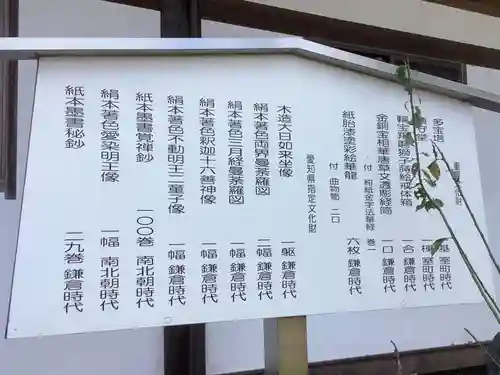 多宝塔
基 室町時代
棟 室町時代
獅子蒔絵戒体箱 一合 鎌倉時代
金銅宝相華唐草文透彫経筒 一口 鎌倉時代
付 紺紙金字法華経 巻一
紙胎漆塗彩絵華籠 六枚 鎌倉時代
付 曲物笥 二口
愛知県指定文化財
木造大日如来坐像 一躯 鎌倉時代
絹本著色両界曼荼羅図 二幅 鎌倉時代
絹本著色三月経曼荼羅図 一幅 鎌倉時代
絹本著色釈迦十六善神像 一幅 鎌倉時代
絹本著色不動明王二童子像 一幅 鎌倉時代
紙本墨書覚禅鈔 一〇〇巻 南北朝時代
絹本著色愛染明王像 一幅 南北朝時代
紙本墨書秘鈔 二九巻 鎌倉時代